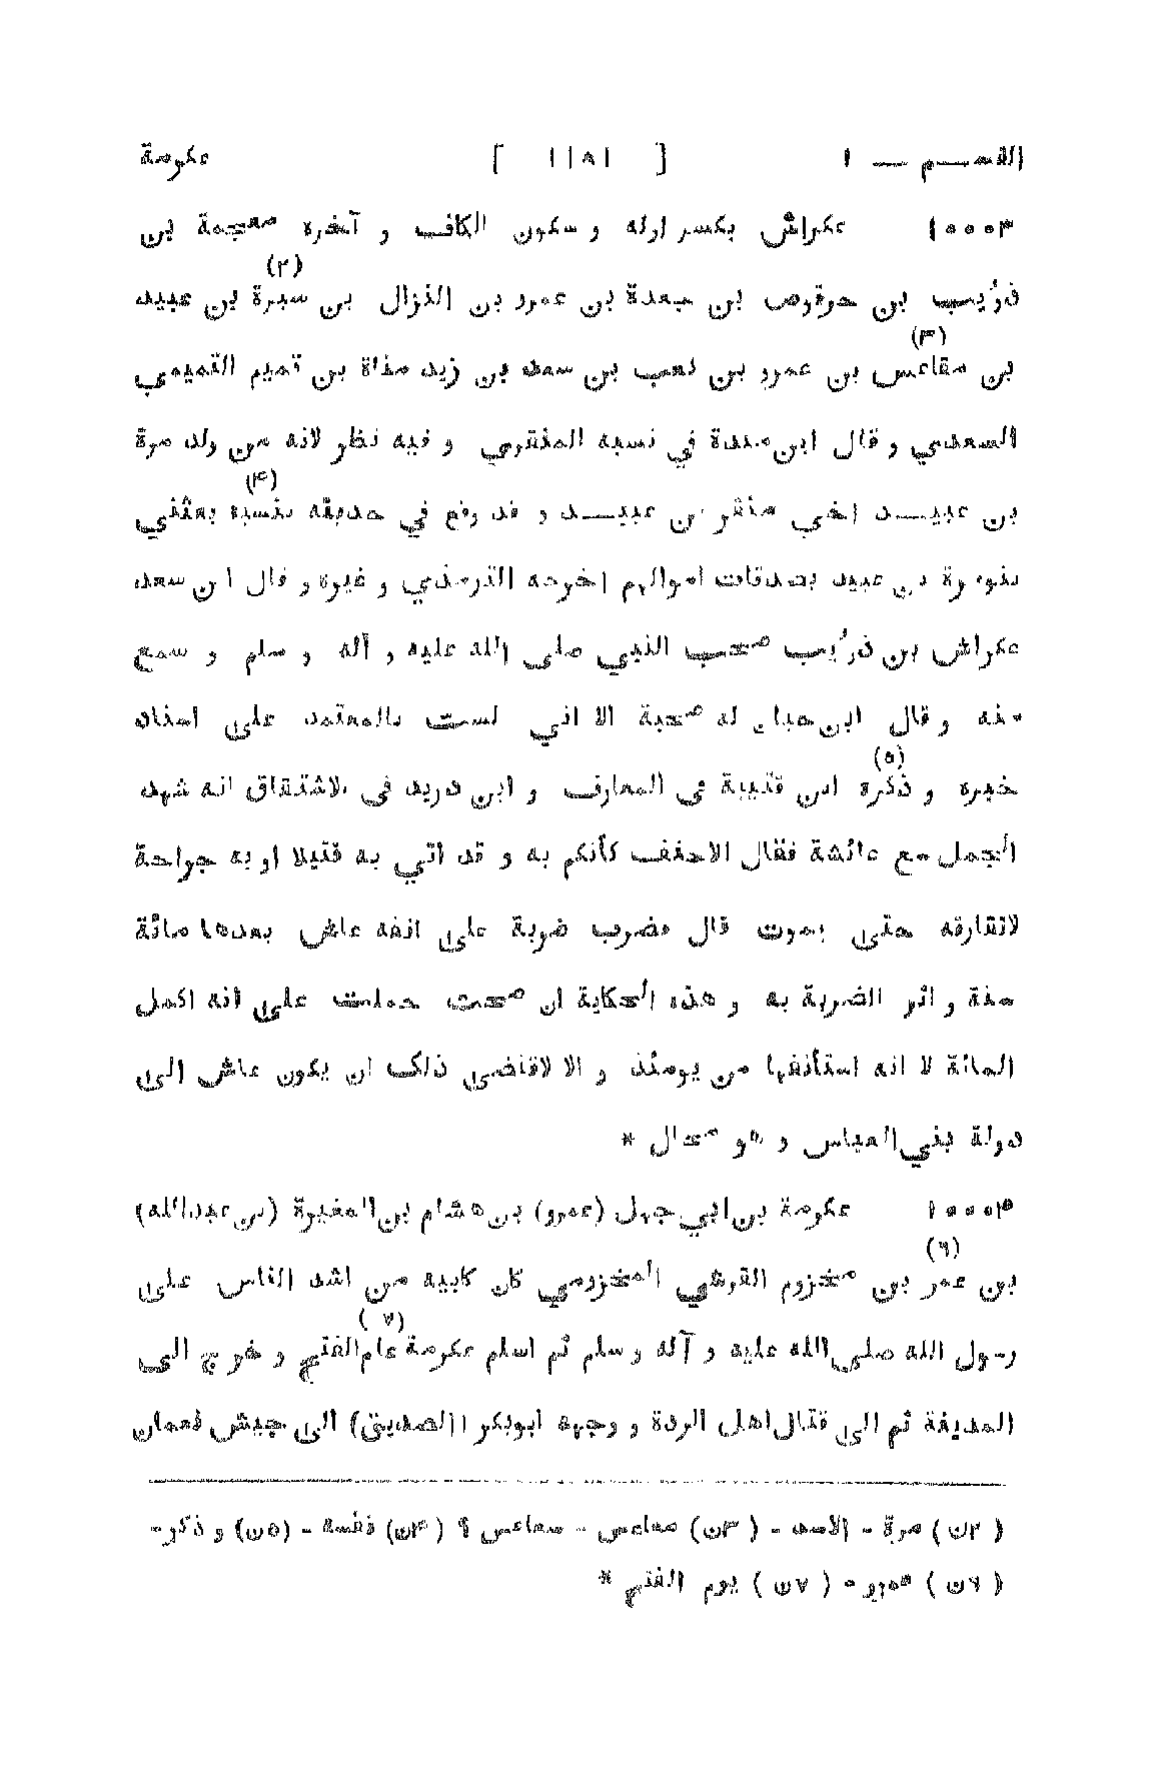 القسم — ١ [ ١١٨١ ] عكرمة
١٠٠٠٣ عكراش بكسر اوله و سكون الكاف و آخره معجمة بن
ذؤيب بن حرقوص بن جعدة بن عمرو بن النزال (٢) بن سبرة بن عبيد
بن مقاعس (٣) بن عمرو بن كعب بن سعد بن زيد مناة بن تميم التميمي
السعدي و قال ابن مندة في نسبه المنقري و فيه نظر لانه من ولد مرة
بن عبيد اخي منقر بن عبيد و قد وقع في حديثه بنسبه (۴) بعثني
بنو مرة بن عبيد بصدقات اموالهم اخرجه الترمذي و غيره و قال ابن سعد
عكراش بن ذؤيب صحب النبي صلى الله عليه و آله و سلم و سمع
منه و قال ابن حبان له صحبة الا اني لست بالمعتمد على اسناد
خبره و ذكره (٥) ابن قتيبة في المعارف و ابن دريد في الاشتقاق انه شهد
الجمل مع عائشة فقال الاحنف كأنكم به و قد اتي به قتيلا او به جراحة
لاتفارقه حتى يموت قال فضرب ضربة على انفه عاش بعدها مائة
سنة و اثر الضربة به و هذه الحكاية ان صحت حملت على انه اكمل
المائة لا انه استأنفها من يومئذ و الا لاقتضى ذلك ان يكون عاش الى
دولة بني العباس و هو محال *
١٠٠٠۴ عكرمة بن ابي جهل (عمرو) بن هشام بن المغيرة (بن عبدالله)
بن عمر (٦) بن مخزوم القرشي المخزومي كان كابيه من اشد الناس على
رسول الله صلى الله عليه و آله و سلم ثم اسلم عكرمة عام الفتح (٧) و خرج الى
المدينة ثم الى قتال اهل الردة و وجهه ابوبكر (الصديق) الى جيش نعمان
( ٢ن ) مرة - الاسد - ( ٣ن ) معاعس - سعاعس ؟ (۴ن) نفسه - (٥ن) و ذكر -
( ٦ن ) عمرو - ( ٧ن ) يوم الفتح *